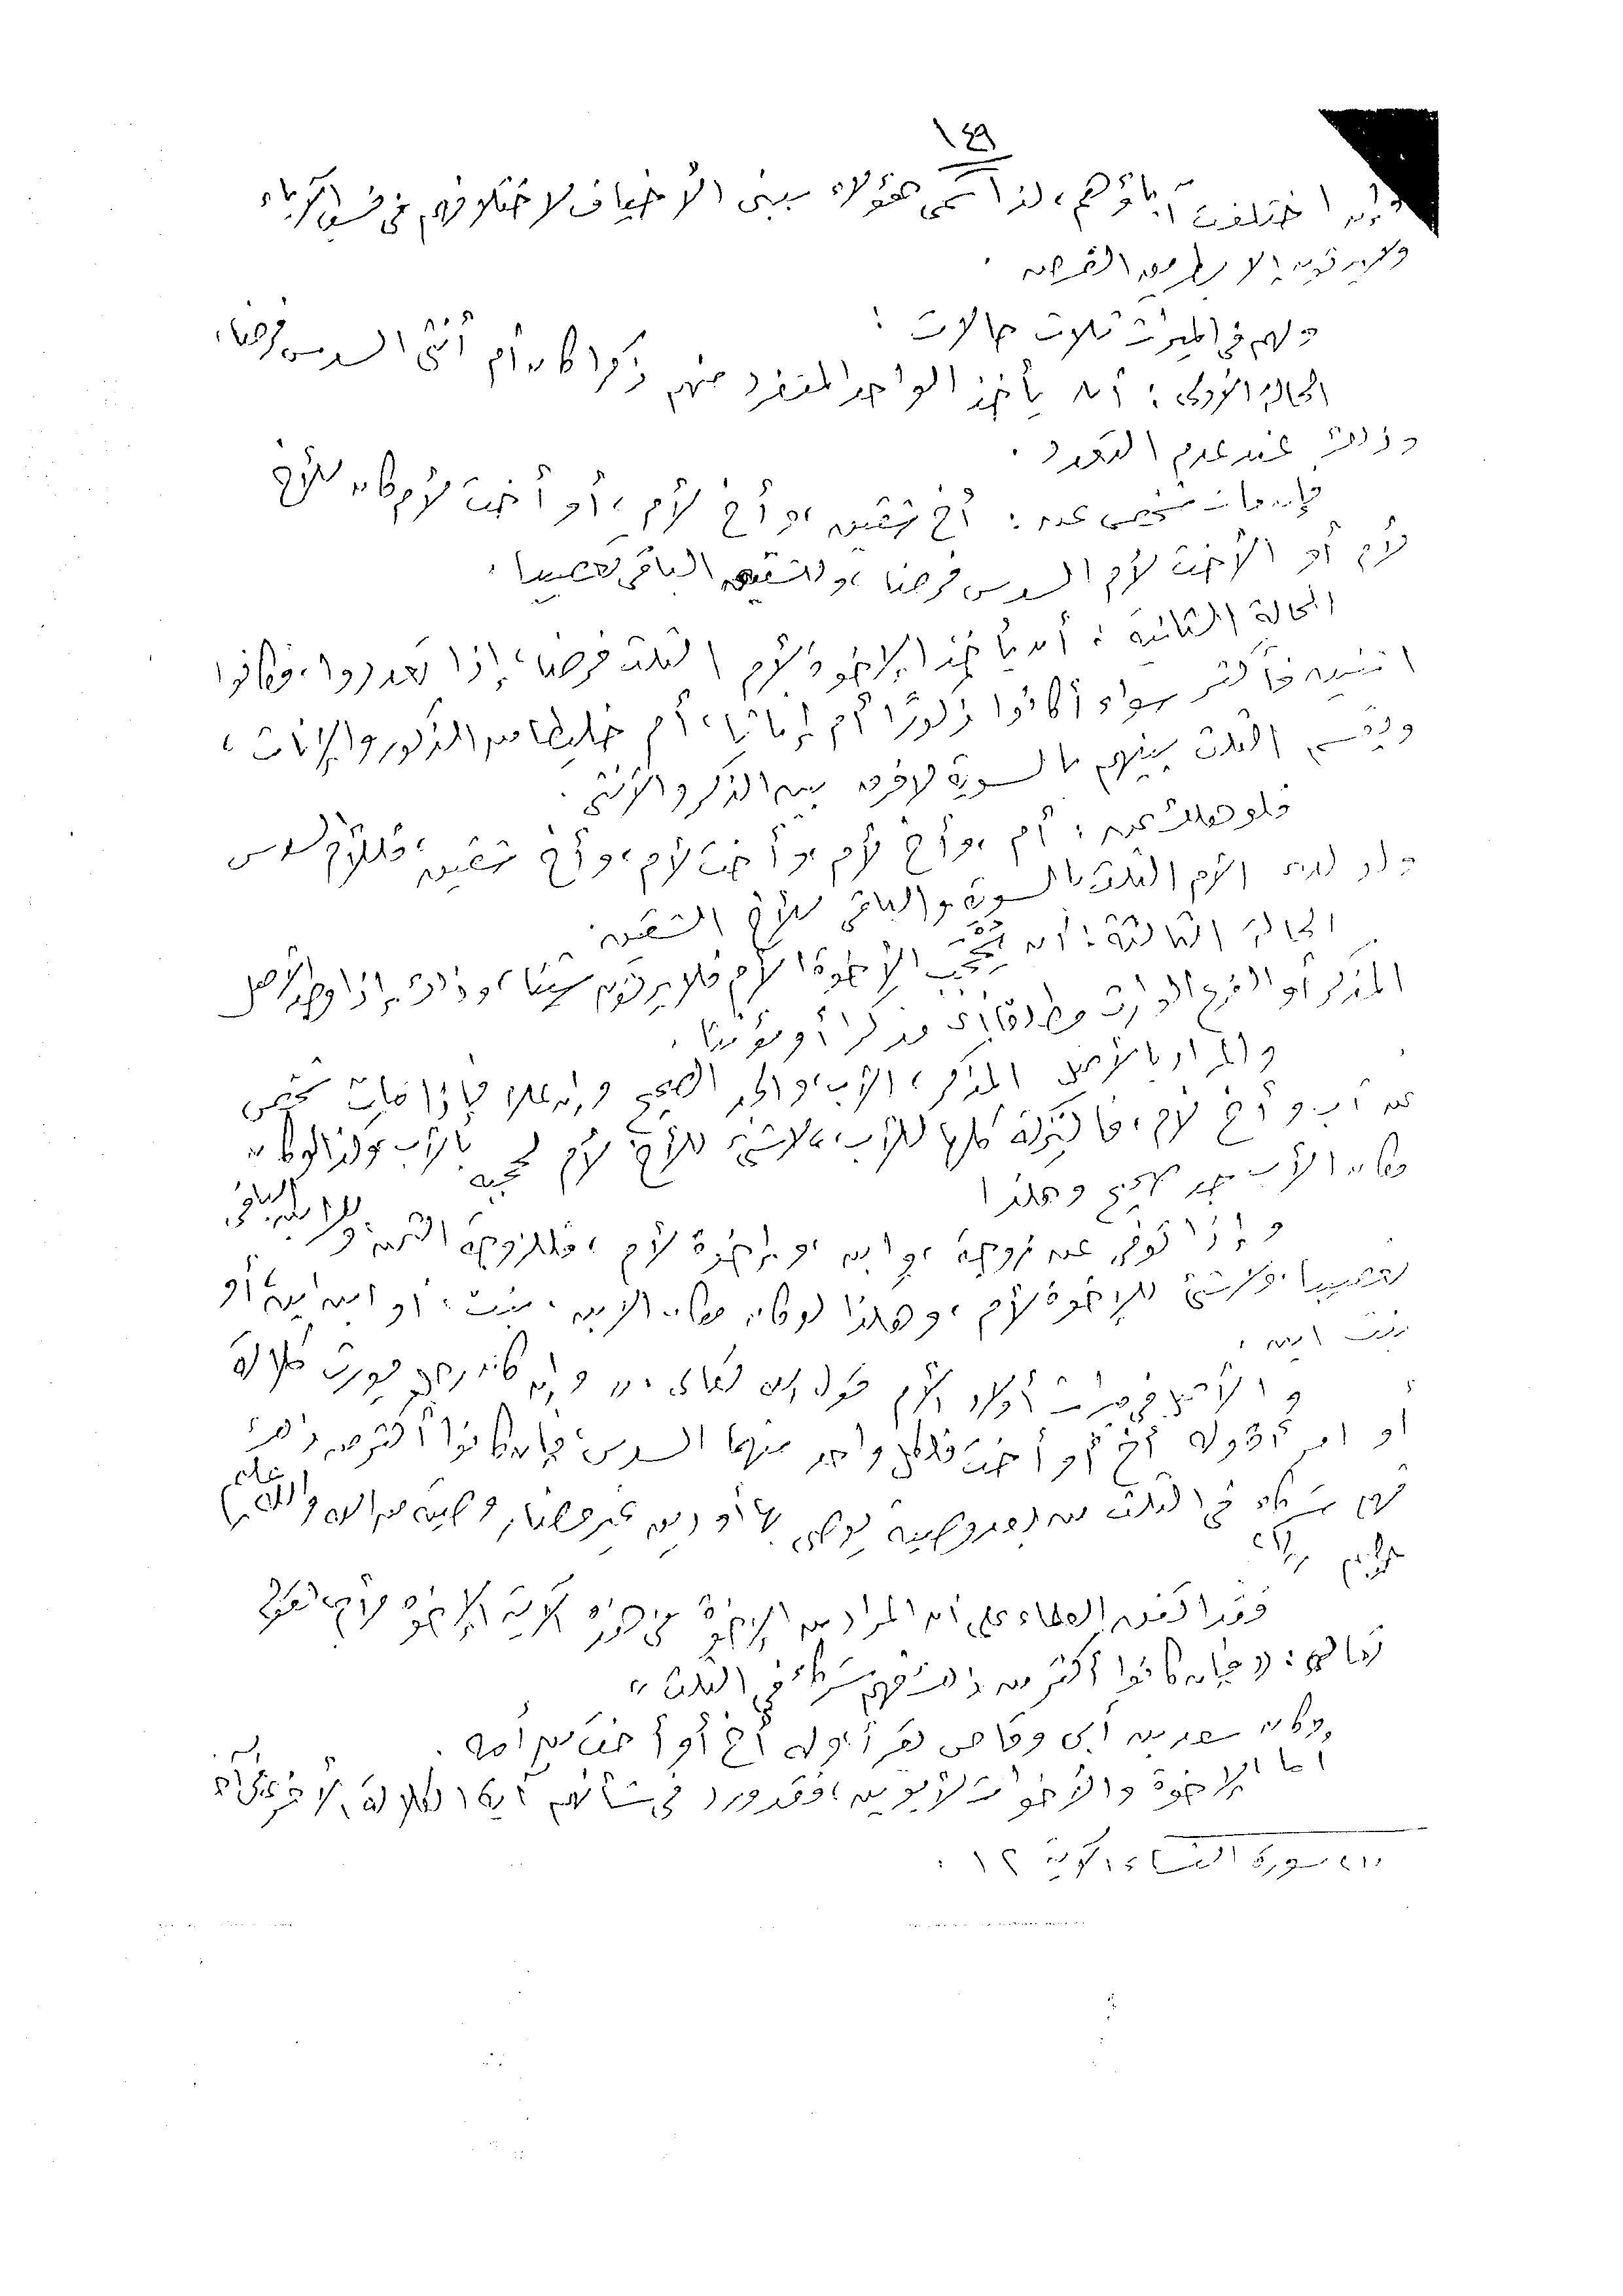 ١٤٩
وإن اختلفت آباؤهم، لذا سمى هؤلاء ببنى الأخياف لاختلافهم فى نسب الآباء
ولا يرثون إلا بطريق الفرض .
ولهم فى الميراث ثلاث حالات :
الحالة الأولى : أن يأخذ الواحد المنفرد منهم ذكرا كان أم أنثى السدس فرضا،
وذلك عند عدم التعدد .
فإن مات شخص عن : أخ شقيق، وأخ لأم، أو أخت لأم كان للأخ
لأم أو الأخت لأم السدس فرضا، وللشقيق الباقى تعصيبا .
الحالة الثانية : أن يأخذ الإخوة لأم الثلث فرضا، إذا تعددوا، فكانوا
اثنين فأكثر سواء أكانوا ذكورًا أم إناثا، أم خليطا من الذكور والإناث،
ويقسم الثلث بينهم بالسوية لا فرق بين الذكر والأنثى .
فلو هلك عن : أم، وأخ لأم، وأخت لأم، وأخ شقيق، فللأم السدس
ولأولاد الأم الثلث بالسوية والباقى للأخ الشقيق .
الحالة الثالثة : أن يُحْجَب الإخوة لأم فلا يرثون شيئا، وذلك إذا وجد الأصل
المذكر أو الفرع الوارث مطلقا أى مذكرا أو مؤنثا .
والمراد بالأصل المذكر، الأب، والجد الصحيح وإن علا فإذا مات شخص
عن أب وأخ لأم، فالتركة كلها للأب، ولا شئ للأخ لأم لحجبه بالأب وكذا لو كان
مكان الأب جد صحيح وهكذا
وإذا توفى عن زوجة، وابن، وإخوة لأم، فللزوجة الثمن وللابن الباقى
تعصيبا، ولا شئ للإخوة لأم، وهكذا لو كان مكان الابن، بنت، أو ابن ابن، أو
بنت ابن .
والأصل فى ميراث أولاد الأم قول الله تعالى : " وإن كان رجل يورث كلالة
أو امرأة وله أخ أو أخت فلكل واحد منهما السدس فإن كانوا أكثر من ذلك
فهم شركاء فى الثلث من بعد وصية يوصى بها أو دين غير مضار وصية من الله والله عليم
حليم "
فقد اتفق العلماء على أن المراد من الإخوة فى هذه الآية الإخوة لأم لقوله
تعالى : " فإن كانوا أكثر من ذلك فهم شركاء فى الثلث "
وكان سعد بن أبى وقاص يقرأ : وله أخ أو أخت من أمه .
أما الإخوة والأخوات لأبوين، فقد ورد فى شأنهم آية الكلالة الأخرى
(١) سورة النساء، الآية ١٢ .